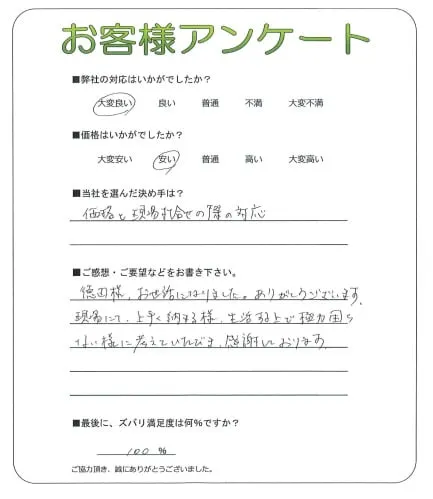 お客様アンケート
■弊社の対応はいかがでしたか？
大変良い 良い 普通 不満 大変不満
■価格はいかがでしたか？
大変安い 安い 普通 高い 大変高い
■当社を選んだ決め手は？
価格と現場打合せの際の対応
■ご感想・ご要望などをお書き下さい。
徳田様、お世話になりました。ありがとうございます。
現場にて、上手く納まる様、生活する上で極力困ら
ない様に考えていただき、感謝しております。
■最後に、ズバリ満足度は何%ですか？
100 %
ご協力頂き、誠にありがとうございました。